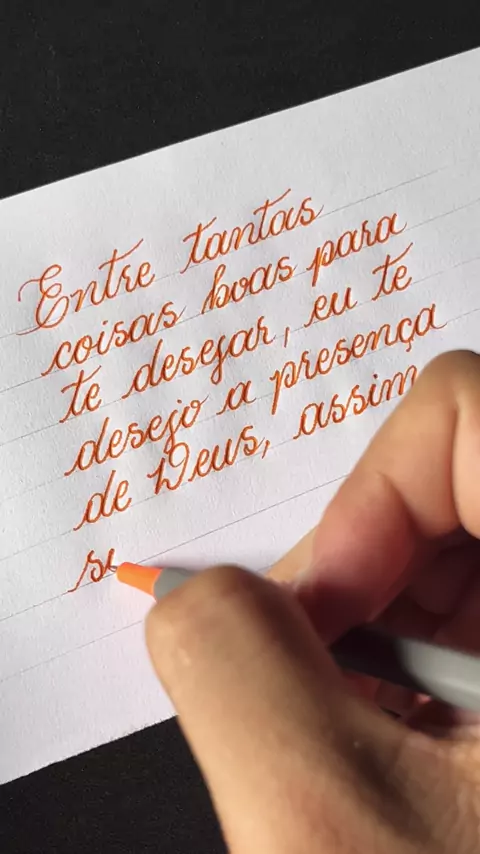 Entre tantas
coisas boas para
te desejar, eu te
desejo a presença
de Deus, assim